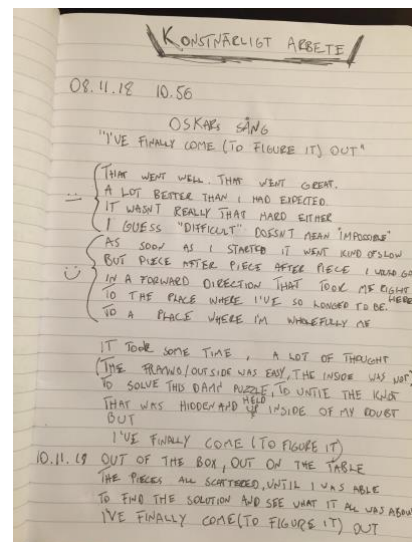 KONSTNÄRLIGT ARBETE
08.11.18 10.56
OSKARS SÅNG
"I'VE FINALLY COME (TO FIGURE IT) OUT"
THAT WENT WELL. THAT WENT GREAT.
A LOT BETTER THAN I HAD EXPECTED.
IT WASN'T REALLY THAT HARD EITHER
I GUESS "DIFFICULT" DOESN'T MEAN "IMPOSSIBLE"
AS SOON AS I STARTED IT WENT KIND OF SLOW
BUT PIECE AFTER PIECE AFTER PIECE I WOULD GO
IN A FORWARD DIRECTION THAT TOOK ME RIGHT
HERE
TO THE PLACE WHERE I'VE SO LONGED TO BE.
TO A PLACE WHERE I'M WHOLEFULLY ME
IT TOOK SOME TIME, A LOT OF THOUGHT
(THE /OUTSIDE WAS EASY, THE INSIDE WAS NOT)
TO SOLVE THIS DAMN PUZZLE, TO UNTIE THE KNOT
HELD
THAT WAS HIDDEN AND INSIDE OF MY DOUBT
BUT
I'VE FINALLY COME (TO FIGURE IT)
10.11.18 OUT OF THE BOX, OUT ON THE TABLE
THE PIECES ALL SCATTERED, UNTIL I WAS ABLE
TO FIND THE SOLUTION AND SEE WHAT IT ALL WAS ABOU
I'VE FINALLY COME (TO FIGURE IT) OUT